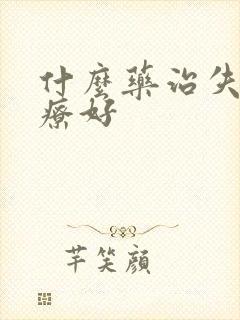 什麼藥治失
療好
芊笑顔